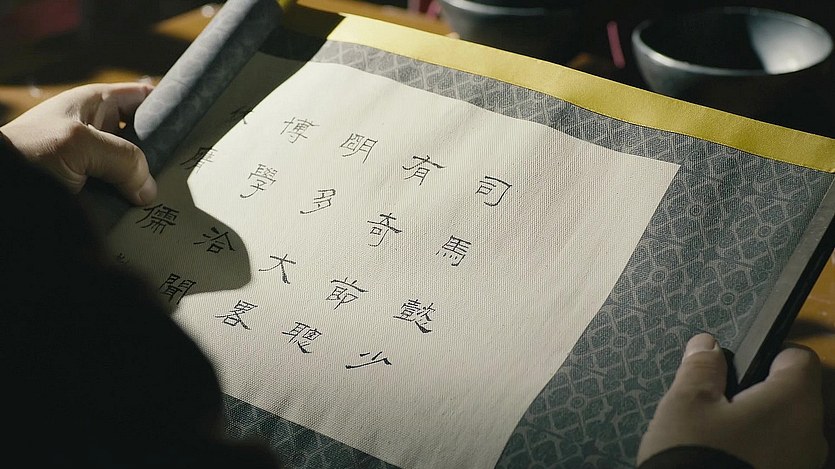 司馬懿少
有奇節聰
明多大畧
博學洽聞
儒